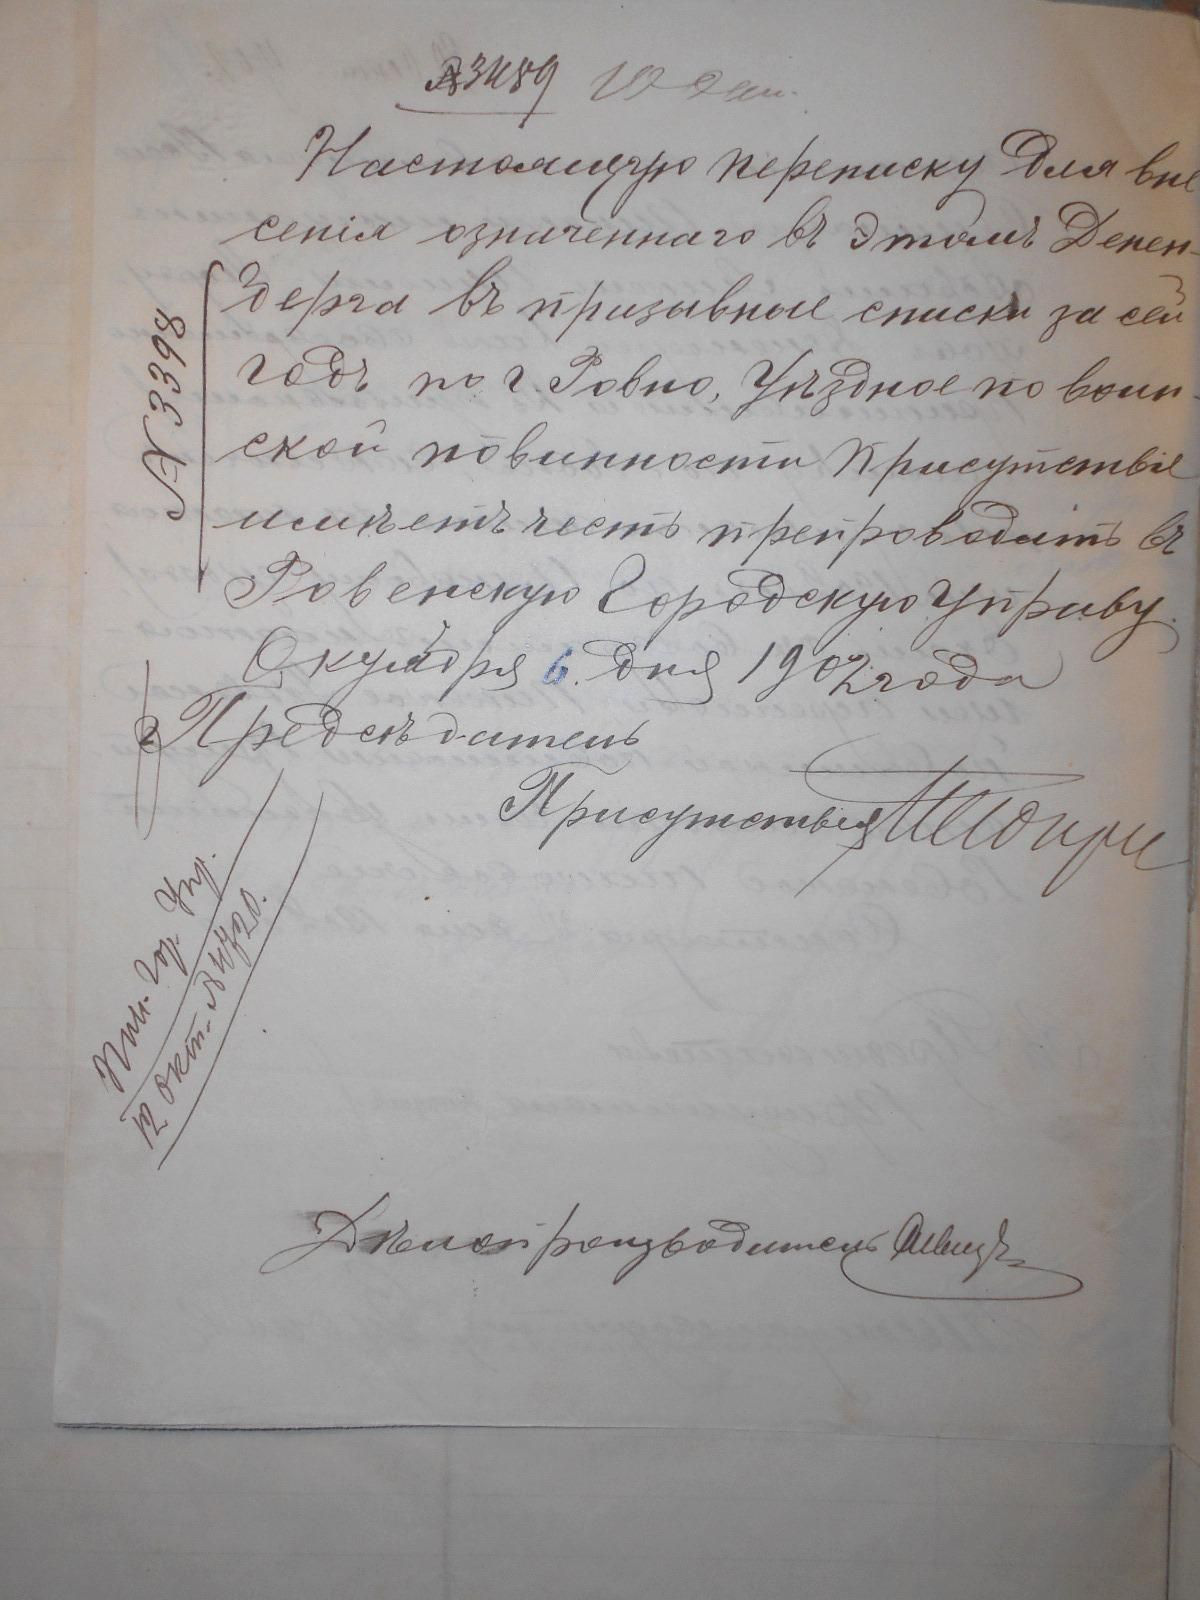 № 3489
Настоящую переписку для вне
сенія означеннаго въ этомъ Делен-
дерга въ призывные списки за сей
годъ по г. Ровно, Уѣздное по воин-
ской повинности Присутствіе
имѣетъ честь препроводить въ
Ровенскую Городскую Управу.
Октября 6. дня 1902 года
Предсѣдатель
Присутствія
№ 3398
12 Окт. № 4720.
Дѣлопроизводитель